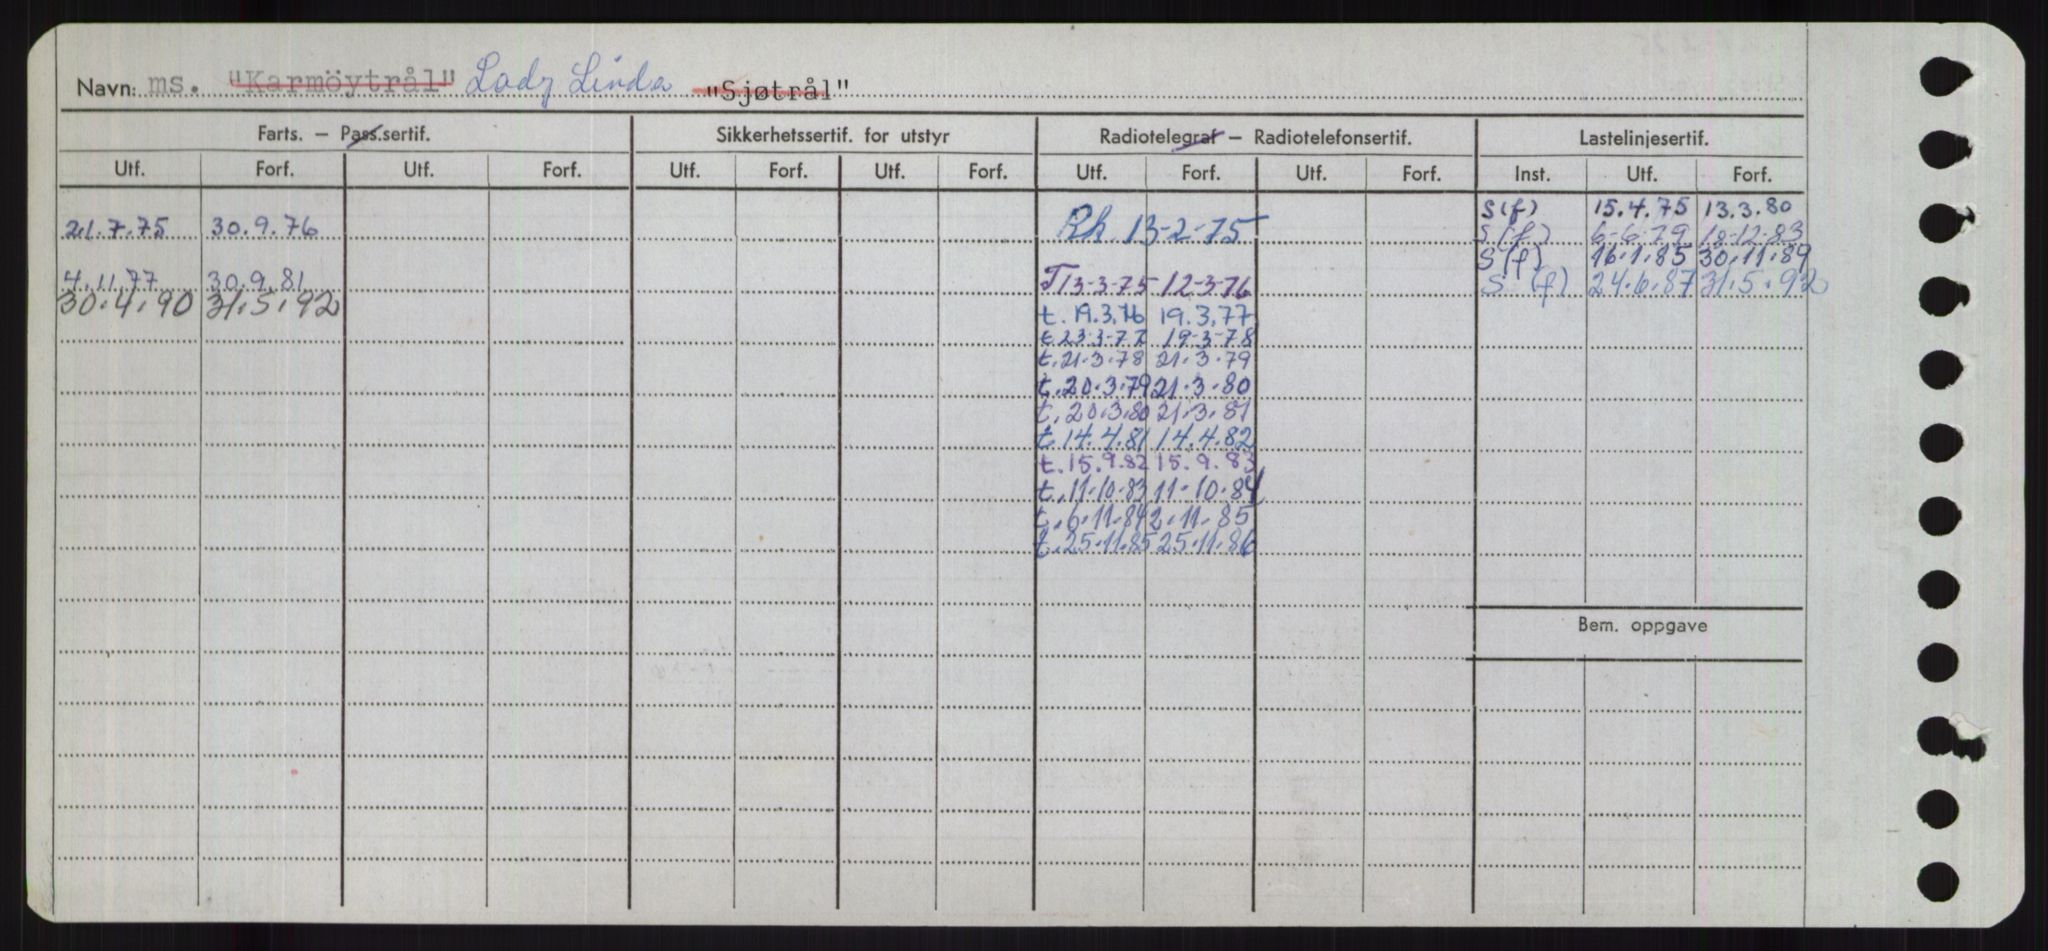 Navn: ms. "Karmöytrål" Lady Linda "Sjøtrål"
Farts. — Pass.sertif. Sikkerhetssertif. for utstyr Radiotelegraf — Radiotelefonsertif. Lastelinjesertif.
Utf. Forf. Utf. Forf. Utf. Forf. Utf. Forf. Utf. Forf. Utf. Forf. Inst. Utf. Forf.
S(f) 15.4.75 13.3.80
21.7.75 30.9.76 Rh. 13-2-75 S(f) 6-6-79 10-12-83
S(f) 16.1.85 30.11.89
4.11.77 30.9.81 T13-3-75 12-3-76 S (f) 24.6.87 31.5.92
30.4.90 31.5.92 t. 19.3.76 19.3.77
t 23-3-77 19-3-78
t. 21.3.78 21.3.79
t. 20.3.79 21.3.80
t. 20.3.80 21.3.81
t. 14.4.81 14.4.82
t. 15.9.82 15.9.83
t. 11.10.83 11.10.84
t. 6.11.84 2.11.85
t. 25.11.85 25.11.86
Bem. oppgave